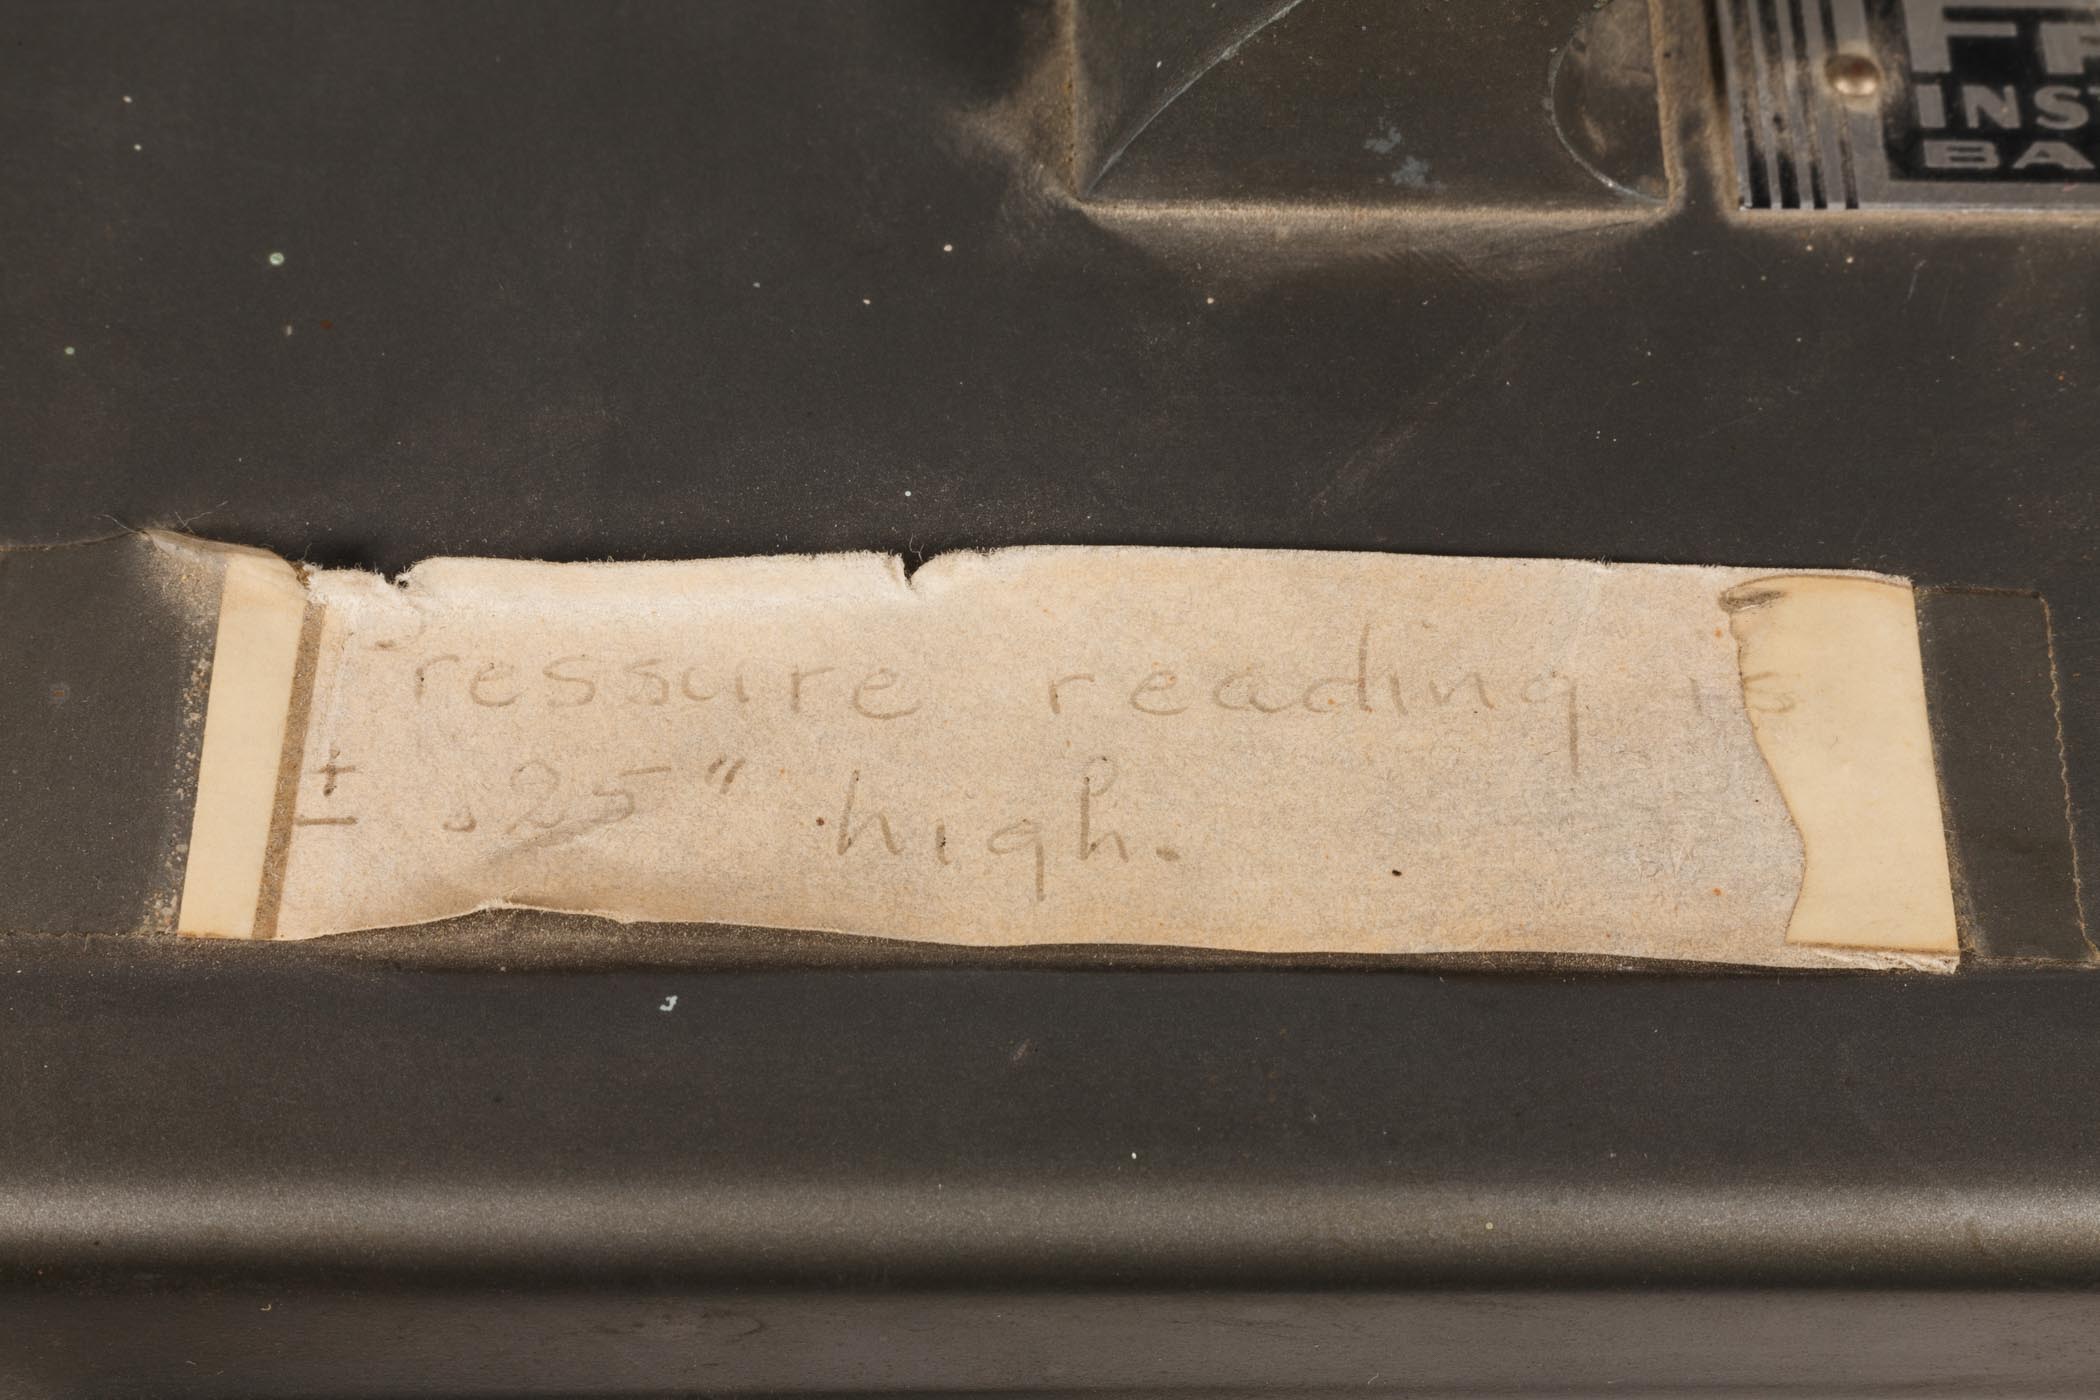 FR
INST
BA
Pressure reading is
± .25" high.